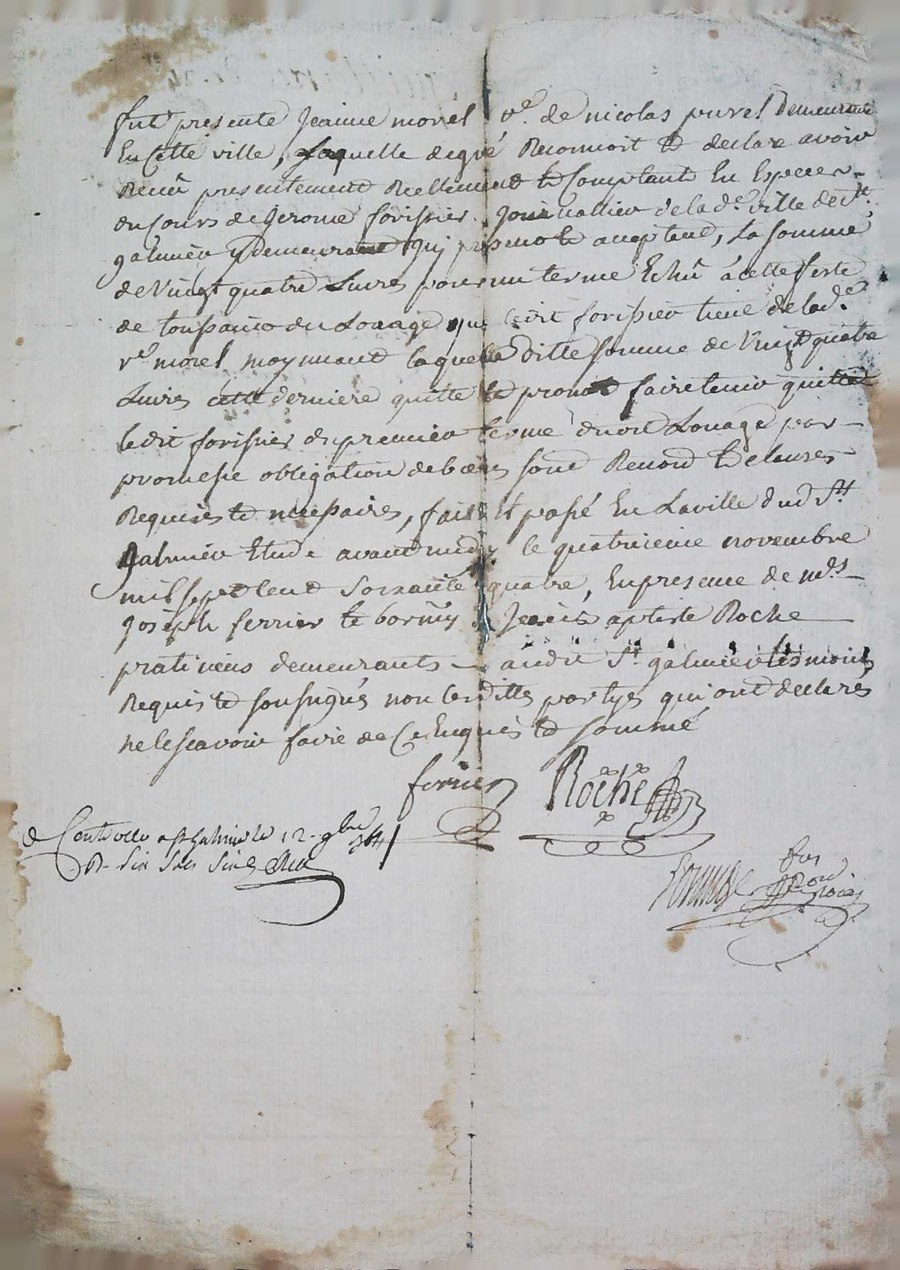 fut presente Jeanne morel v.e de nicolas purel Demeurante
En cette ville, Laquelle degré Reconnoit et declare avoir
Receu presentement Reellement et Comptant En Especes
du Cours de Jerome forissier Journallier de lad.e ville de S.t
galmier y demeurant Qui present et acceptant, La somme
de Vingt quatre Livres pour un terme Echû à cette feste
de toussaint du Louage que ledit forissier tient de lad.e
v.e morel moyennant laquelle ditte somme de Vingt quatre
Livres cette derniere quitte et promet faire tenir quitte
ledit forissier du premier terme dudit Louage par
promesse obligation de biens soumd Renond et clauses
Requises et necessaires, fait et passé En La ville dud S.t
galmier Etude avant midy le quatrieme novembre
mil sept cent Soixante quatre, En presence de m.es
joseph ferrier et Jean baptiste Roche
praticiens demeurants audit S.t galmier temoins
Requis et soussignés non lesdittes partyes qui ont declarés
ne le scavoir faire de Ce Enquis et sommé
ferrier Roche
Controllé a S.t Galmier le 12 9bre 1764
R. Six Sols Six d.